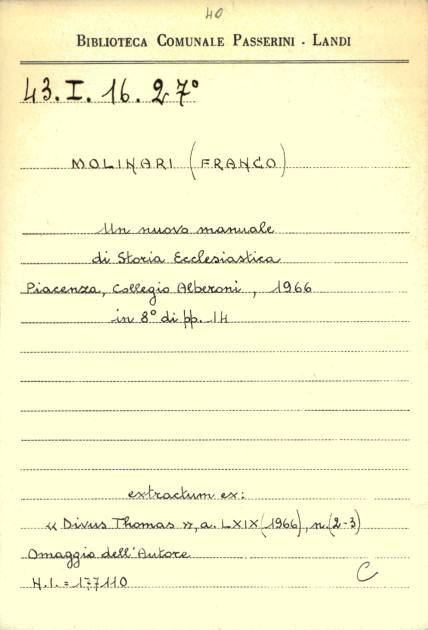 40
BIBLIOTECA COMUNALE PASSERINI - LANDI
43. I. 16. 27°
MOLINARI (FRANCO)
Un nuovo manuale
di Storia Ecclesiastica
Piacenza, Collegio Alberoni, 1966
in 8° di pp. 14
extractum ex:
« Divus Thomas », a. LXIX (1966), n. (2-3)
Omaggio dell'Autore
N.I. = 177110
C